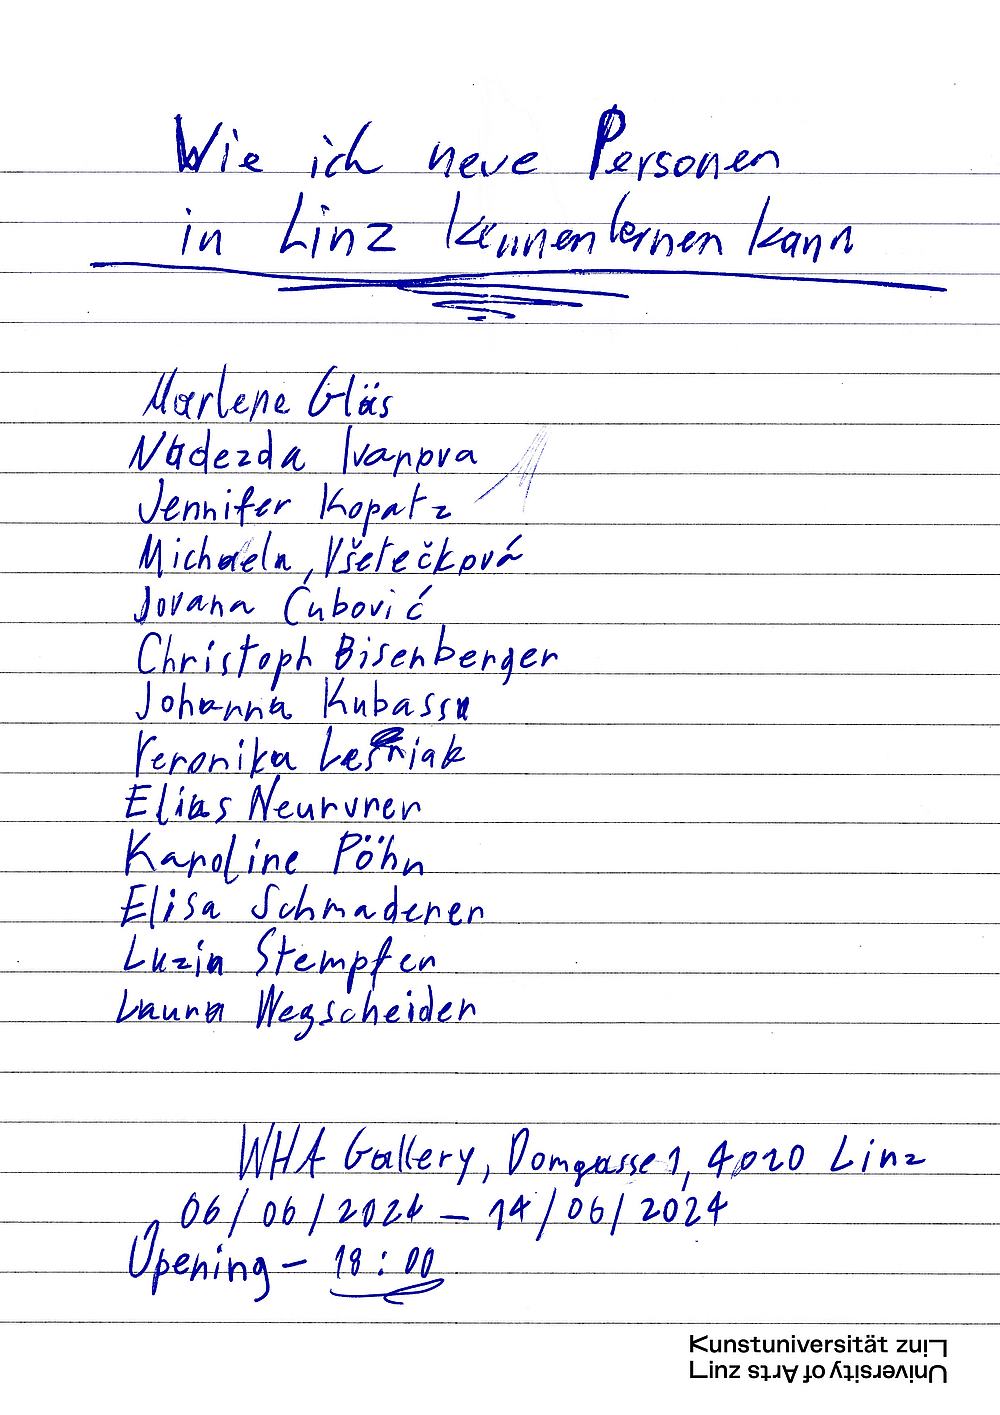 Wie ich neue Personen
in Linz kennenlernen kann
Marlene Gläs
Nadezda Ivanova
Jennifer Kopatz
Michaela Všetečková
Jovana Čubović
Christoph Bisenberger
Johanna Kubassa
Veronika Leśniak
Elias
Karoline Pöhn
Elisa Schmaderer
Luzia Stempfer
Laura Wegscheider
WHA Gallery, Domgasse 1, 4020 Linz
06/06/2024 – 14/06/2024
Opening – 18:00
Kunstuniversität Linz
University of Arts Linz